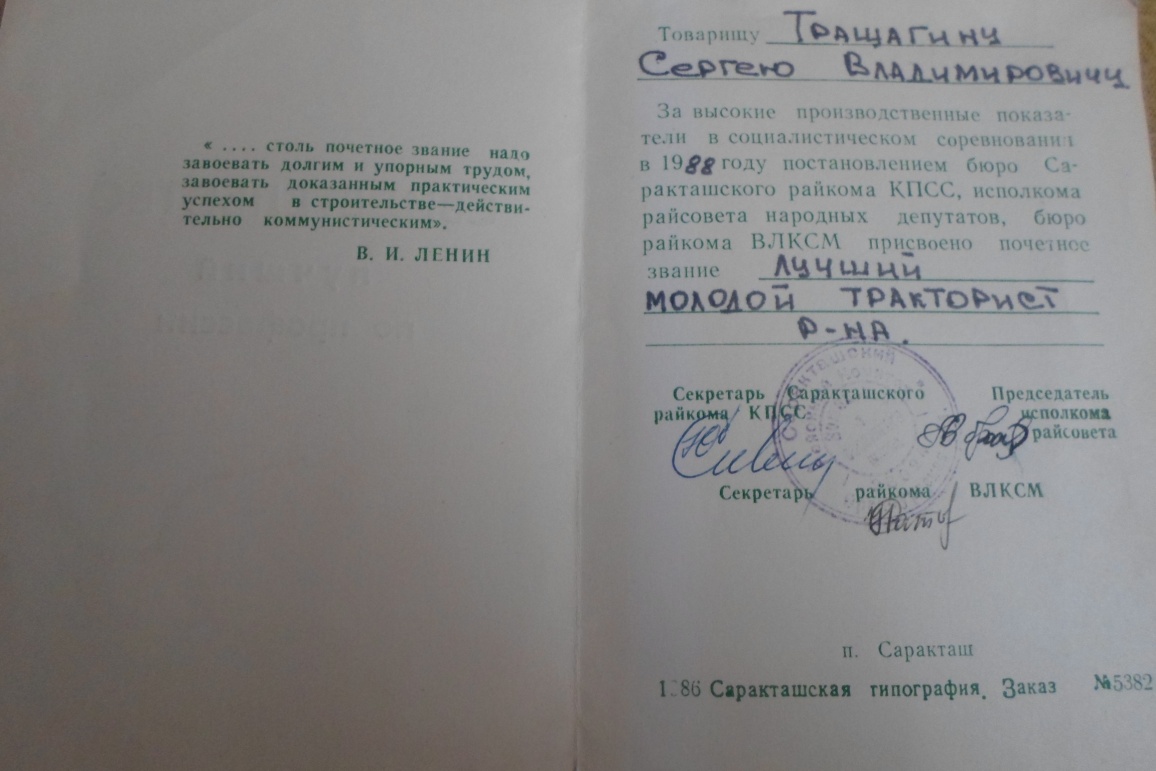 « .... столь почетное звание надо
завоевать долгим и упорным трудом,
завоевать доказанным практическим
успехом в строительстве—действи-
тельно коммунистическим».
В. И. ЛЕНИН
Товарищу Тращагину
Сергею Владимировичу
За высокие производственные показа-
тели в социалистическом соревновании
в 1988 году постановлением бюро Са-
ракташского райкома КПСС, исполкома
райсовета народных депутатов, бюро
райкома ВЛКСМ присвоено почетное
звание лучший
молодой тракторист
р-на.
Секретарь Саракташского
райкома КПСС
Председатель
исполкома
райсовета
Секретарь райкома ВЛКСМ
п. Саракташ
1986 Саракташская типография. Заказ №5382